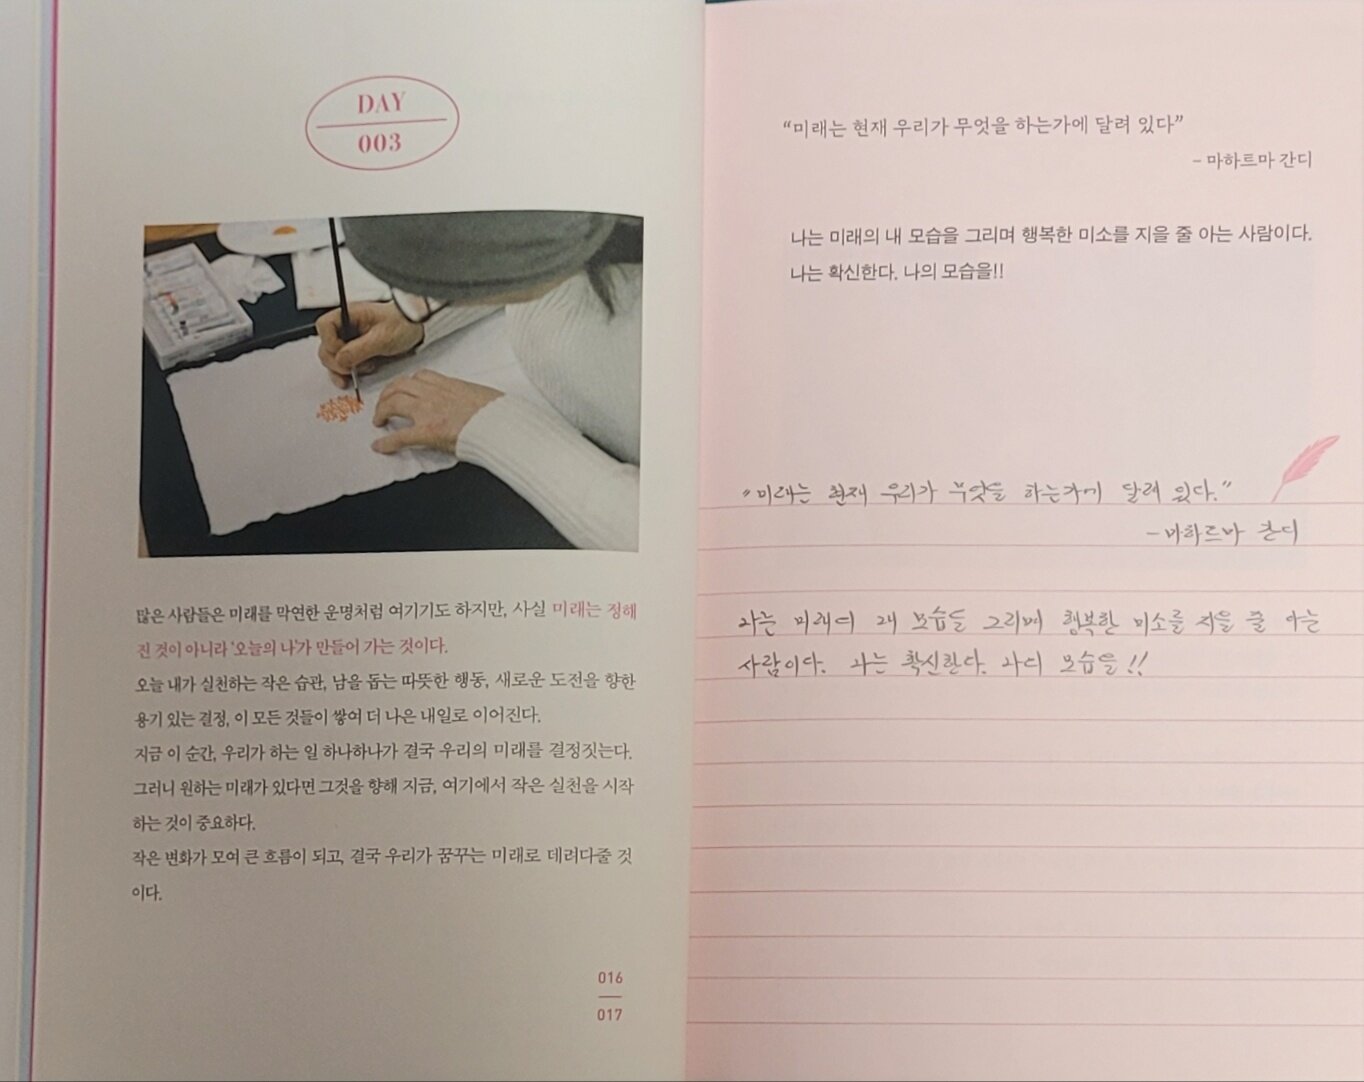 DAY
003
많은 사람들은 미래를 막연한 운명처럼 여기기도 하지만, 사실 미래는 정해
진 것이 아니라 ‘오늘의 나’가 만들어 가는 것이다.
오늘 내가 실천하는 작은 습관, 남을 돕는 따뜻한 행동, 새로운 도전을 향한
용기 있는 결정, 이 모든 것들이 쌓여 더 나은 내일로 이어진다.
지금 이 순간, 우리가 하는 일 하나하나가 결국 우리의 미래를 결정짓는다.
그러니 원하는 미래가 있다면 그것을 향해 지금, 여기에서 작은 실천을 시작
하는 것이 중요하다.
작은 변화가 모여 큰 흐름이 되고, 결국 우리가 꿈꾸는 미래로 데려다줄 것
이다.
016
017
“미래는 현재 우리가 무엇을 하는가에 달려 있다”
– 마하트마 간디
나는 미래의 내 모습을 그리며 행복한 미소를 지을 줄 아는 사람이다.
나는 확신한다. 나의 모습을!!
“미래는 현재 우리가 무엇을 하는가에 달려 있다.”
– 마하트마 간디
나는 미래의 내 모습을 그리며 행복한 미소를 지을 줄 아는
사람이다. 나는 확신한다. 나의 모습을!!